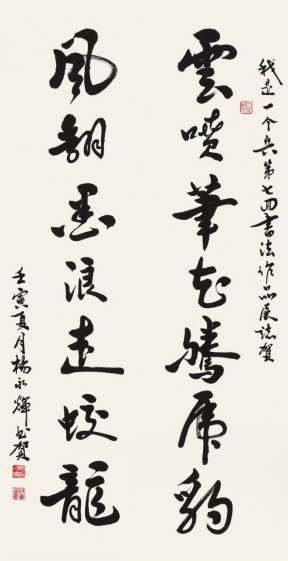 我是一个兵第七回書法作品展誌賀
雲噴筆花騰虎豹
風翻墨浪走蛟龍
壬寅夏月楊永輝书賀